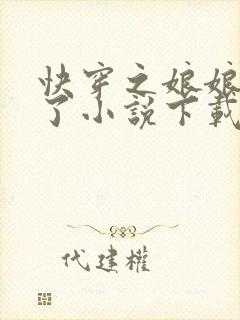 快穿之娘娘
了小說下載
代建權